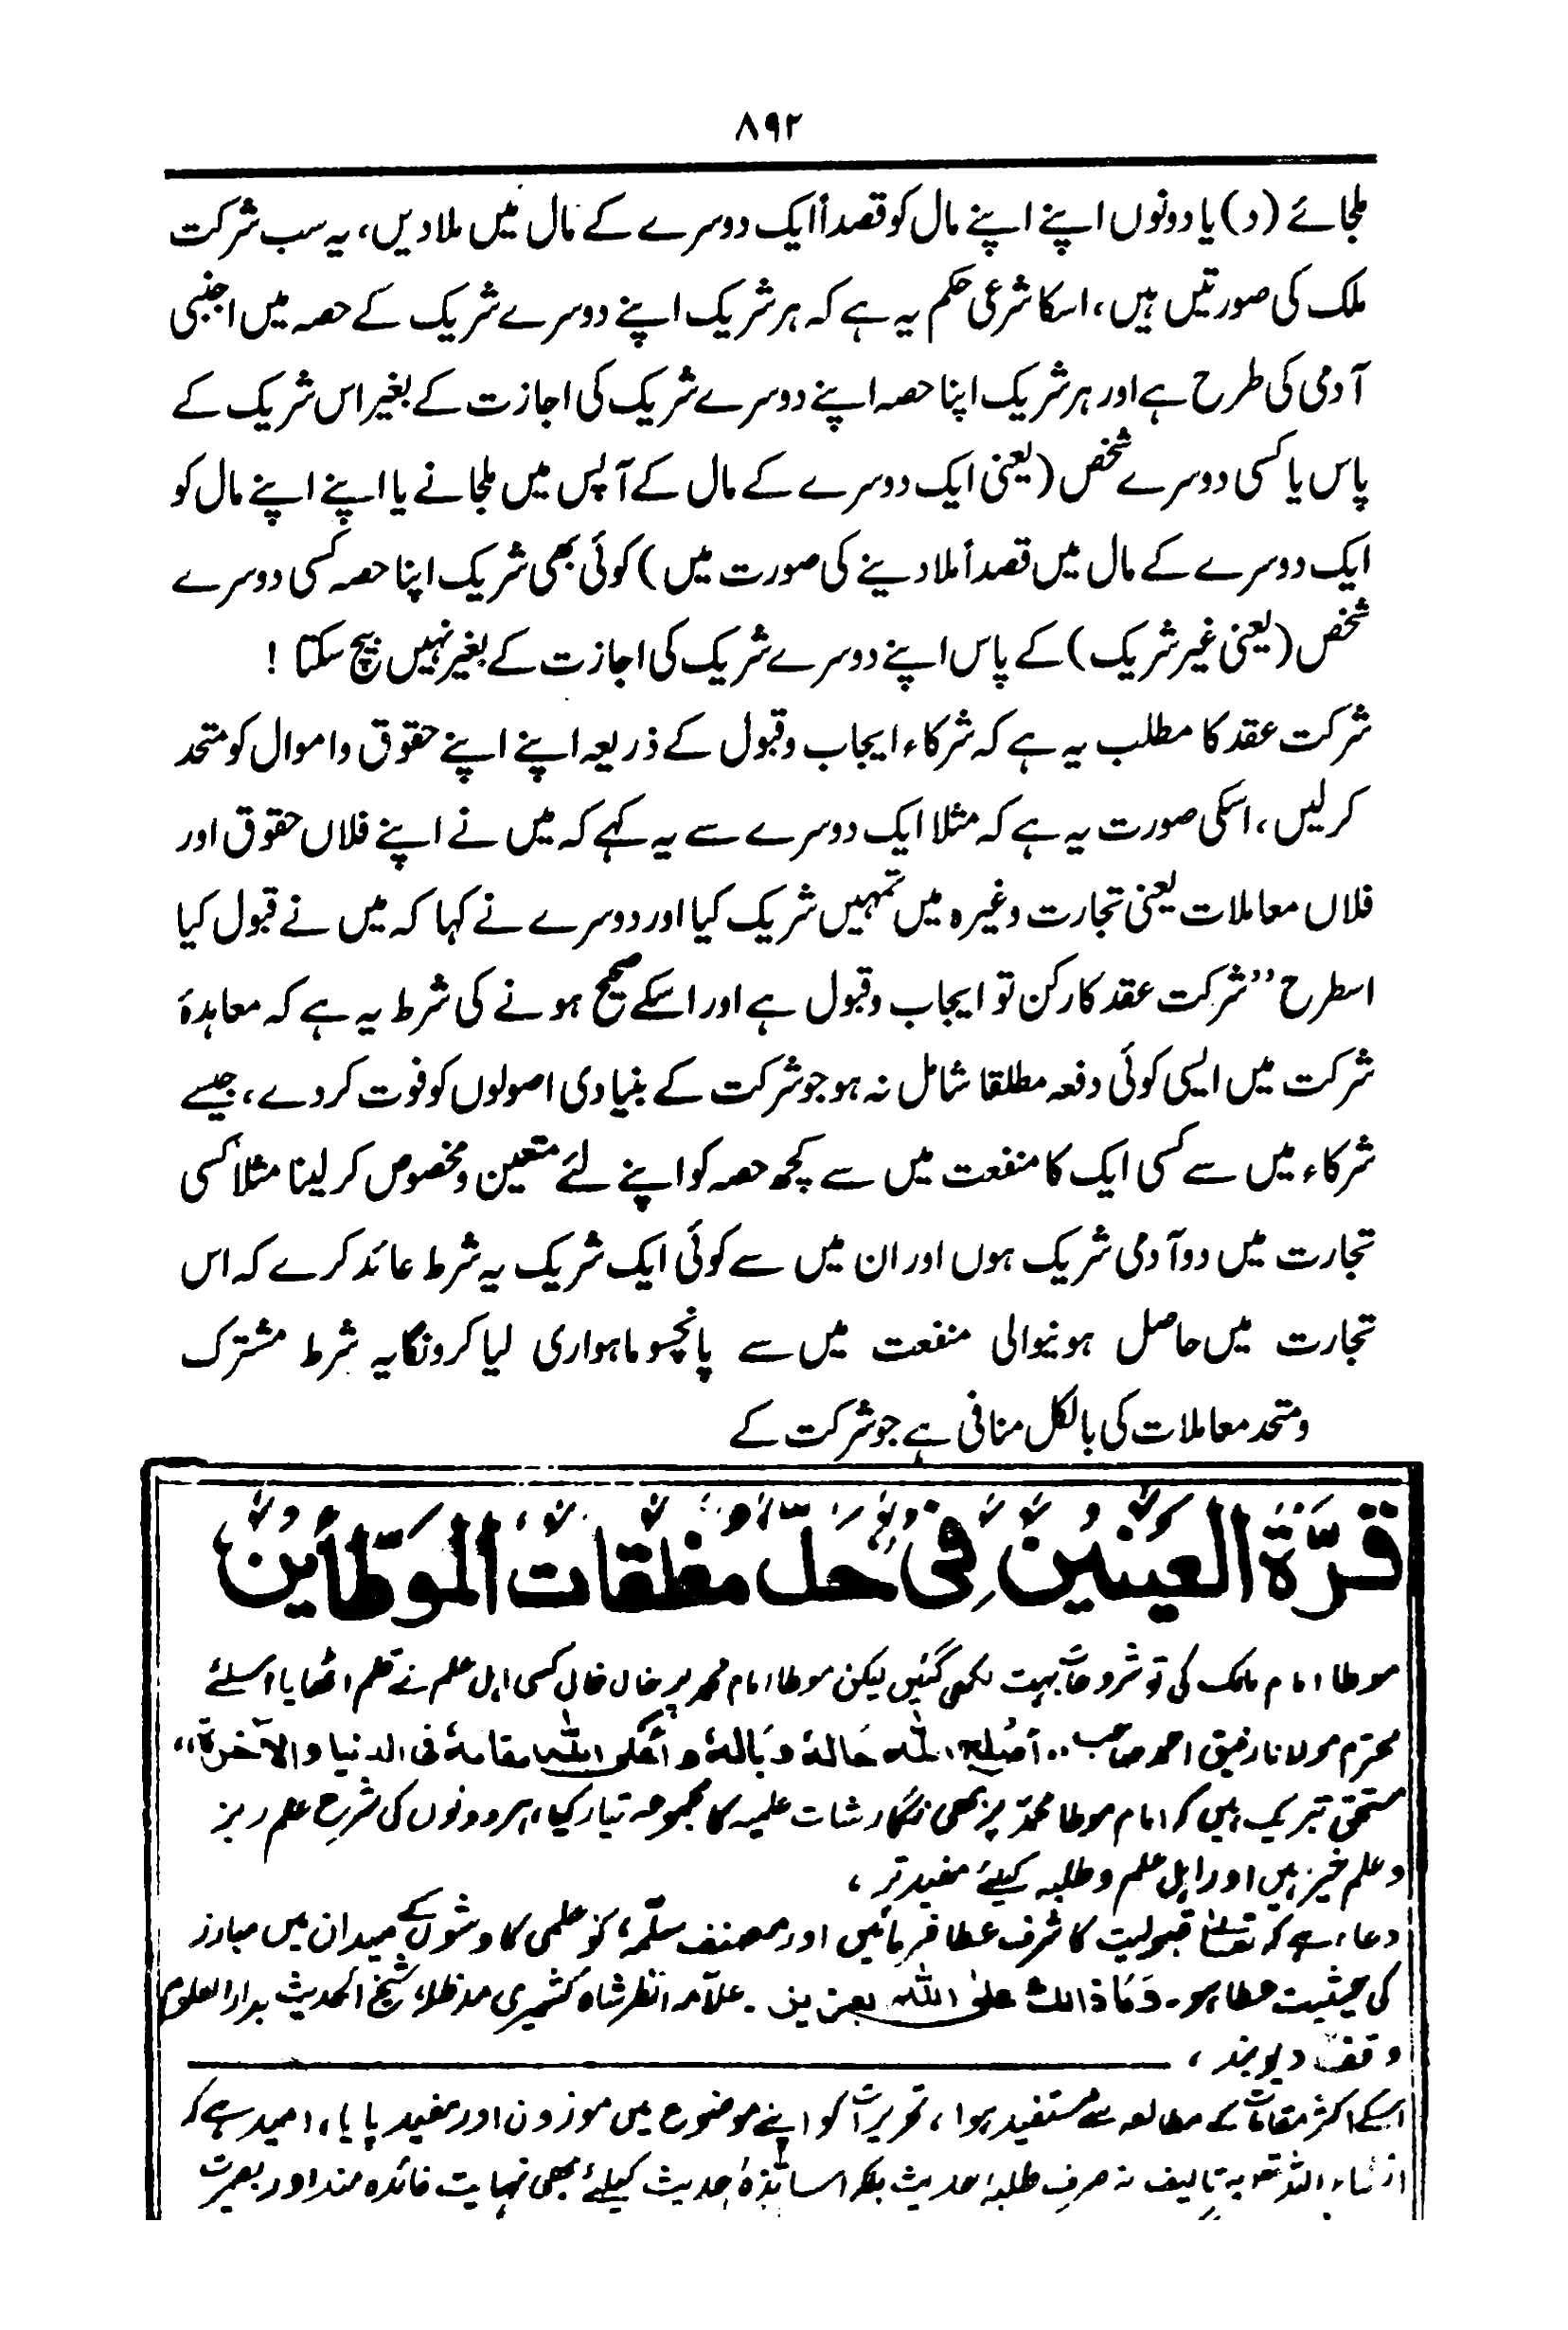 ۸۹۲
ملجائے (د) یا دونوں اپنے اپنے مال کو قصداً ایک دوسرے کے مال میں ملادیں، یہ سب شرکت
ملک کی صورتیں ہیں، اسکا شرعی حکم یہ ہے کہ ہر شریک اپنے دوسرے شریک کے حصہ میں اجنبی
آدمی کی طرح ہے اور ہر شریک اپنا حصہ اپنے دوسرے شریک کی اجازت کے بغیر اس شریک کے
پاس یا کسی دوسرے شخص (یعنی ایک دوسرے کے مال کے آپس میں ملجانے یا اپنے اپنے مال کو
ایک دوسرے کے مال میں قصداً ملادینے کی صورت میں) کوئی بھی شریک اپنا حصہ کسی دوسرے
شخص (یعنی غیر شریک) کے پاس اپنے دوسرے شریک کی اجازت کے بغیر نہیں بیچ سکتا !
شرکت عقد کا مطلب یہ ہے کہ شرکاء ایجاب وقبول کے ذریعہ اپنے اپنے حقوق واموال کو متحد
کرلیں، اسکی صورت یہ ہے کہ مثلا ایک دوسرے سے یہ کہے کہ میں نے اپنے فلاں حقوق اور
فلاں معاملات یعنی تجارت وغیرہ میں تمہیں شریک کیا اور دوسرے نے کہا کہ میں نے قبول کیا
اسطرح ’’شرکت عقد کا رکن تو ایجاب وقبول ہے اور اسکے صحیح ہونے کی شرط یہ ہے کہ معاہدۂ
شرکت میں ایسی کوئی دفعہ مطلقا شامل نہ ہو جو شرکت کے بنیادی اصولوں کو فوت کردے، جیسے
شرکاء میں سے کسی ایک کا منفعت میں سے کچھ حصہ کو اپنے لئے متعین ومخصوص کرلینا مثلاً کسی
تجارت میں دو آدمی شریک ہوں اور ان میں سے کوئی ایک شریک یہ شرط عائد کرے کہ اس
تجارت میں حاصل ہونیوالی منفعت میں سے پانچسو ماہواری لیا کرونگا یہ شرط مشترک
ومتحد معاملات کی بالکل منافی ہے جو شرکت کے
قُرَّةُ العَيْنَيْن فِي حَلِّ مغلقات المؤطأين
موطا امام مالک کی تو شروحات بہت لکھی گئیں لیکن موطا امام محمد پر خال خال کسی اہل علم نے قلم اٹھایا اسلئے
محترم مولانا رفیق احمد صاحب ،، أصلح اللہ حالہٗ وبالہٗ و أعلی اللہ مقامہٗ فی الدنیا والآخرة،،
مستحق تبریک ہیں کہ امام موطا محمدؒ پر بھی نگارشات علمیہ کا مجموعہ تیار کیا، ہر دونوں کی شرح علم ریز
وعلم خیز ہیں اور اہل علم وطلبہ کیلئے مفید تر ،
دعاء ہے کہ تعالیٰ قبولیت کا شرف عطا فرمائیں اور مصنف سلّمہٗ کو علمی کاوشوں کے میدان میں مبارز
کی حیثیت عطا ہو۔ وَمَا ذالك علی اللہ بعزیز۔ علامہ انظر شاہ کشمیری مدظلہٗ شیخ الحدیث بدارالعلوم
وقف دیوبند ،
اسکے اکثر مقامات کے مطالعہ سے مستفید ہوا، تحریرات کو اپنے موضوع میں موزون اور مفید پایا، امید ہے کہ
انشاء اللہ تعالیٰ یہ تالیف نہ صرف طلبۂ حدیث بلکہ اساتذۂ حدیث کیلئے بھی نہایت فائدہ مند اور بصیرت